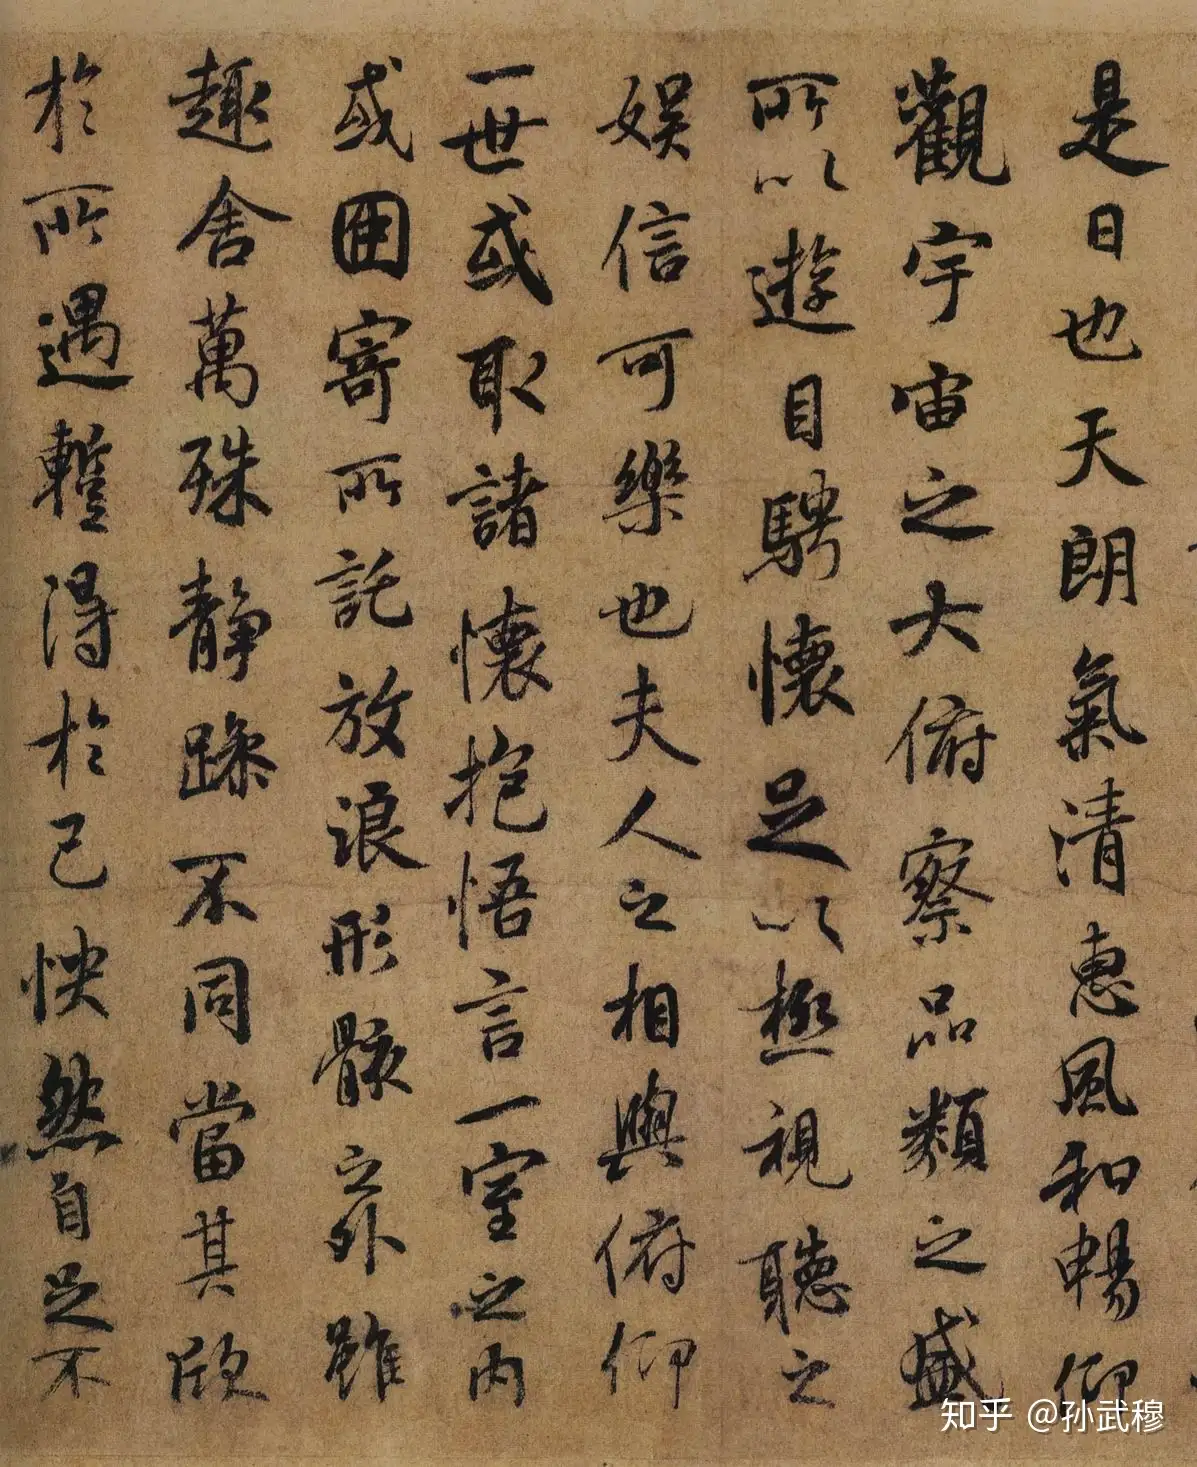 是日也天朗氣清惠風和暢仰
觀宇宙之大俯察品類之盛
所以遊目騁懷足以極視聽之
娛信可樂也夫人之相與俯仰
一世或取諸懷抱悟言一室之內
或因寄所託放浪形骸之外雖
趣舍萬殊靜躁不同當其欣
於所遇蹔得於己怏然自足不
知乎 @孙武穆